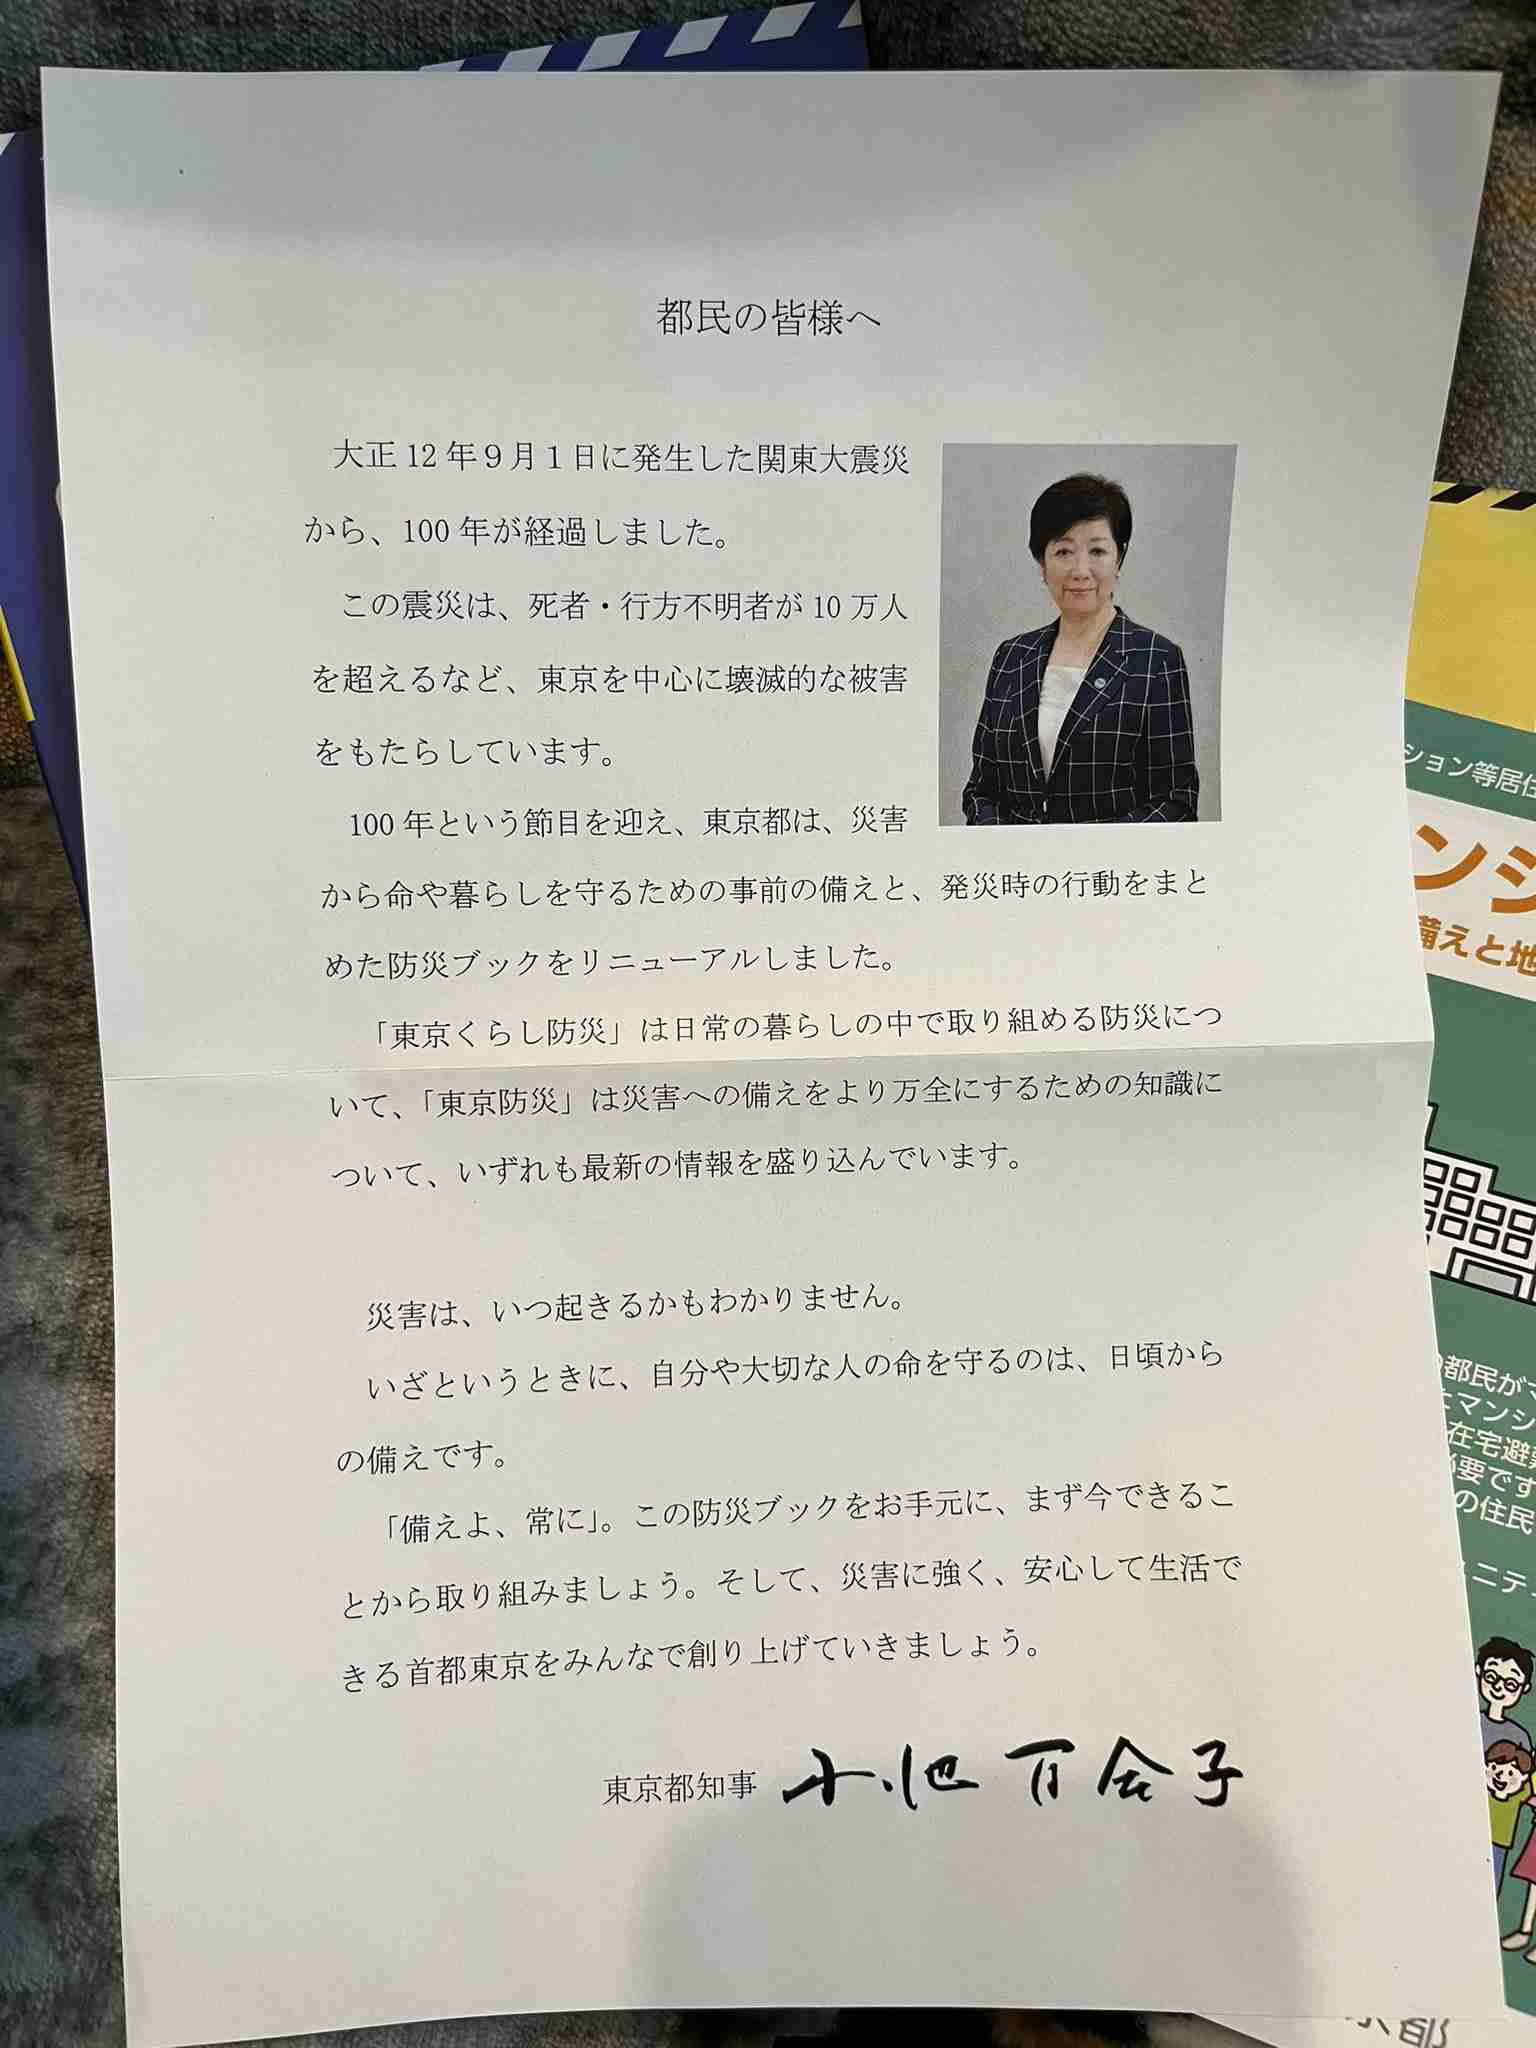 都民の皆様へ
大正12年9月1日に発生した関東大震災
から、100年が経過しました。
この震災は、死者・行方不明者が10万人
を超えるなど、東京を中心に壊滅的な被害
をもたらしています。
100年という節目を迎え、東京都は、災害
から命や暮らしを守るための事前の備えと、発災時の行動をまと
めた防災ブックをリニューアルしました。
「東京くらし防災」は日常の暮らしの中で取り組める防災につ
いて、「東京防災」は災害への備えをより万全にするための知識に
ついて、いずれも最新の情報を盛り込んでいます。
災害は、いつ起きるかもわかりません。
いざというときに、自分や大切な人の命を守るのは、日頃から
の備えです。
「備えよ、常に」。この防災ブックをお手元に、まず今できるこ
とから取り組みましょう。そして、災害に強く、安心して生活で
きる首都東京をみんなで創り上げていきましょう。
東京都知事 小池百合子
ション等居住
ンシ
備えと地
都民がマ
マンシ
在宅避難
必要です
の住民
ュニテ
京都